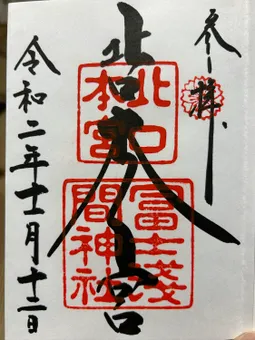 参拝
北口本宮
北口
本宮
冨士淺
間神社
令和二年十一月十二日